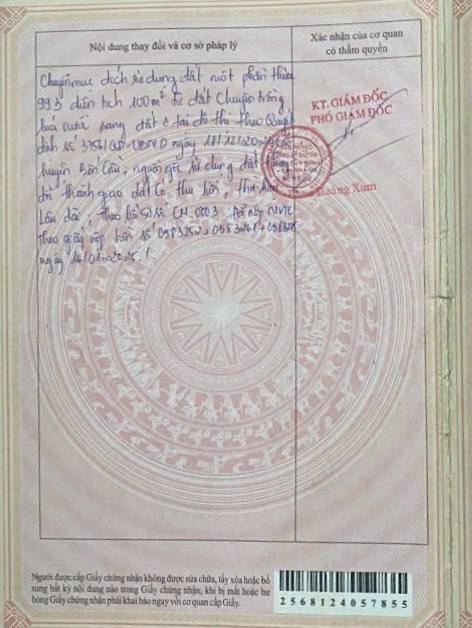 Nội dung thay đổi và cơ sở pháp lý
Xác nhận của cơ quan
có thẩm quyền
Chuyển mục đích sử dụng đất một phần thửa
993 diện tích 100m² từ đất Chuyên trồng
lúa nước sang đất ở tại đô thị theo Quyết
định số UBND ngày
huyện Bến Cầu, nguồn gốc sử dụng đất
thành giao đất có thu tiền, thời hạn
Lâu dài, theo hồ sơ số CM.0003
theo giấy nộp tiền số 0583252,
ngày
KT. GIÁM ĐỐC
PHÓ GIÁM ĐỐC
Hoàng Xum
Người được cấp Giấy chứng nhận không được sửa chữa, tẩy xóa hoặc bổ
sung bất kỳ nội dung nào trong Giấy chứng nhận; khi bị mất hoặc hư
hỏng Giấy chứng nhận phải khai báo ngay với cơ quan cấp Giấy.
2568124057855